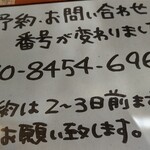 予約・お問い合わせ
番号が変わりまし
0-8454-696
約は2~3日前ま
お願い致します。